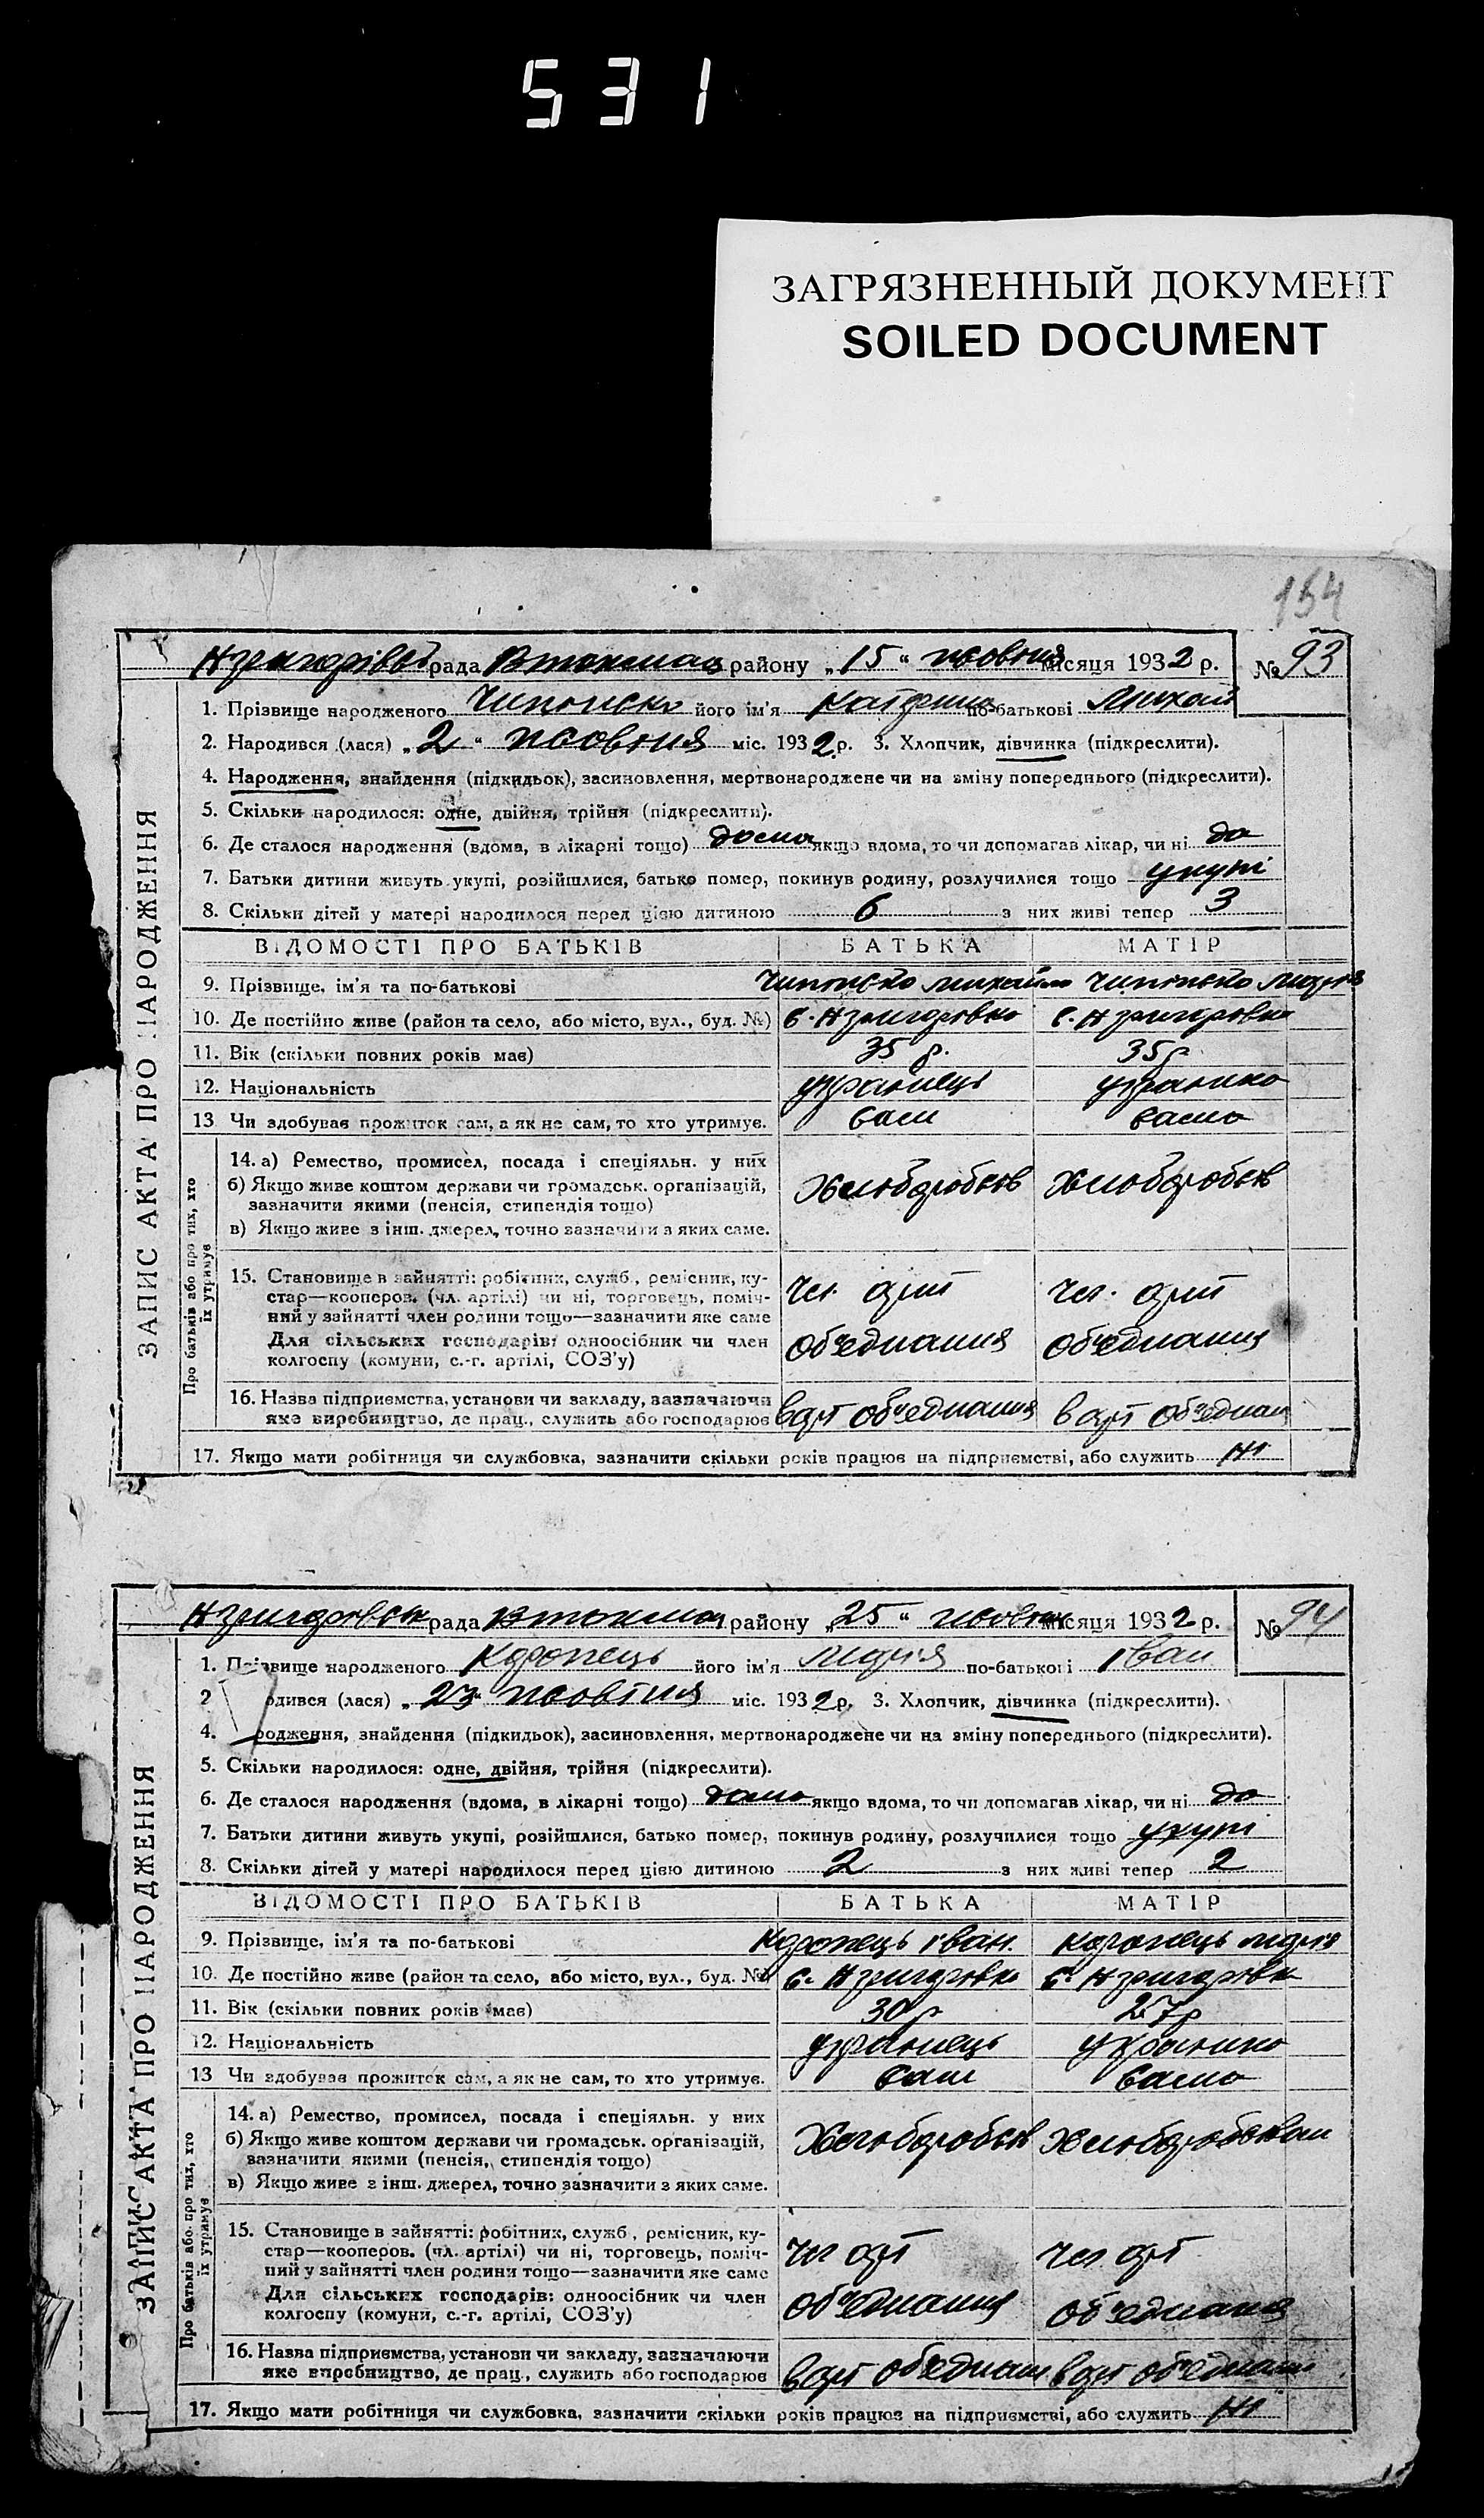 531
ЗАГРЯЗНЕННЫЙ ДОКУМЕНТ
SOILED DOCUMENT
154
ЗАПИС АКТА ПРО НАРОДЖЕННЯ
рада району „15“ жовтня місяця 1932 р. № 93
1. Прізвище народженого його ім'я по-батькові Михай
2. Народився (лася) „2“ жовтня міс. 1932 р. 3. Хлопчик, дівчинка (підкреслити).
4. Народження, знайдення (підкидьок), засиновлення, мертвонароджене чи на зміну попереднього (підкреслити).
5. Скільки народилося: одне, двійня, трійня (підкреслити).
6. Де сталося народження (вдома, в лікарні тощо) дома якщо вдома, то чи допомагав лікар, чи ні
7. Батьки дитини живуть укупі, розійшлися, батько помер, покинув родину, розлучилися тощо укупі
8. Скільки дітей у матері народилося перед цією дитиною 6 з них живі тепер 3
ВІДОМОСТІ ПРО БАТЬКІВ БАТЬКА МАТІР
9. Прізвище, ім'я та по-батькові
10. Де постійно живе (район та село, або місто, вул., буд. №) с. Н григоровка с. Н григоровка
11. Вік (скільки повних років має) 35 р. 35 р
12. Національність українець українка
13 Чи здобуває прожиток сам, а як не сам, то хто утримує. сам сама
Про батьків або про тих, хто їх утримує
14. а) Ремество, промисел, посада і спеціяльн. у них
б) Якщо живе коштом держави чи громадськ. організацій,
зазначити якими (пенсія, стипендія тощо) Хлібороб Хлібороб
в) Якщо живе з інш. джерел, точно зазначити з яких саме.
15. Становище в зайнятті: робітник, служб., ремісник, ку-
стар—кооперов. (чл. артілі) чи ні, торговець, поміч- чл. арт чл. арт
ний у зайнятті член родини тощо—зазначити яке саме
Для сільських господарів: одноосібник чи член об'єднання об'єднання
колгоспу (комуни, с.-г. артілі, СОЗ'у)
16. Назва підприємства, установи чи закладу, зазначаючи
яке виробництво, де прац., служить або господарює в арт об'єднання в арт об'єднан
17. Якщо мати робітниця чи службовка, зазначити скільки років працює на підприємстві, або служить ні
ЗАПИС АКТА ПРО НАРОДЖЕННЯ
рада району „25“ жовтня місяця 1932 р. № 94
1. Прізвище народженого Коронець його ім'я Марія по-батькові Іван
2 одився (лася) „23“ жовтня міс. 1932 р. 3. Хлопчик, дівчинка (підкреслити).
4. родження, знайдення (підкидьок), засиновлення, мертвонароджене чи на зміну попереднього (підкреслити).
5. Скільки народилося: одне, двійня, трійня (підкреслити).
6. Де сталося народження (вдома, в лікарні тощо) дома якщо вдома, то чи допомагав лікар, чи ні
7. Батьки дитини живуть укупі, розійшлися, батько помер, покинув родину, розлучилися тощо укупі
8. Скільки дітей у матері народилося перед цією дитиною 2 з них живі тепер 2
ВІДОМОСТІ ПРО БАТЬКІВ БАТЬКА МАТІР
9. Прізвище, ім'я та по-батькові Коронець Іван. Коронець Марія
10. Де постійно живе (район та село, або місто, вул., буд. №) с. Н григоровка с. Н григоровка
11. Вік (скільки повних років має) 30 р 27 р
12. Національність українець українка
13 Чи здобуває прожиток сам, а як не сам, то хто утримує. сам сама
Про батьків або про тих, хто їх утримує
14. а) Ремество, промисел, посада і спеціяльн. у них
б) Якщо живе коштом держави чи громадськ. організацій,
зазначити якими (пенсія, стипендія тощо)
в) Якщо живе з інш. джерел, точно зазначити з яких саме.
15. Становище в зайнятті: робітник, служб., ремісник, ку-
стар—кооперов. (чл. артілі) чи ні, торговець, поміч- чл арт чл. арт
ний у зайнятті член родини тощо—зазначити яке саме
Для сільських господарів: одноосібник чи член об'єднання об'єднання
колгоспу (комуни, с.-г. артілі, СОЗ'у)
16. Назва підприємства, установи чи закладу, зазначаючи
яке виробництво, де прац., служить або господарює в арт об'єднан в арт об'єднан
17. Якщо мати робітниця чи службовка, зазначити скільки років працює на підприємстві, або служить ні